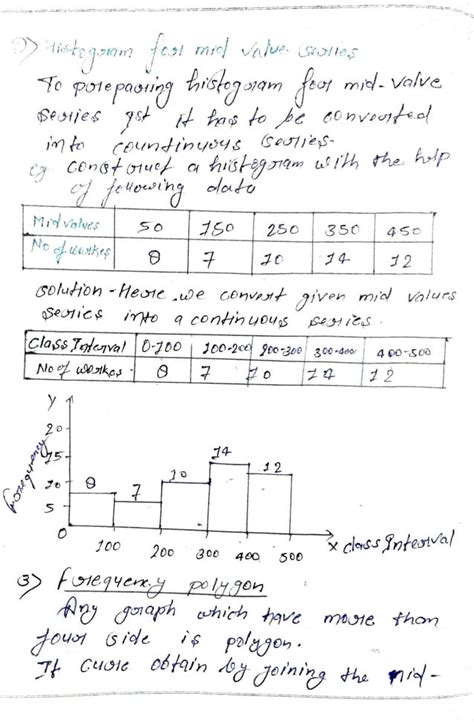 2) Histogram for mid value series
To porepaoring histogoram foor mid-value
series 1st it has to be converted
into countinuous series.
eg construct a histogram with the help
of following data
Mid values 50 150 250 350 450
No of workes 8 7 10 14 12
solution - Here we convert given mid values
series into a continuous series.
Class Interval 0-100 100-200 200-300 300-400 400-500
No of workes 8 7 10 14 12
Y
20
15
10
5
0
Forequency
8
7
10
14
12
100 200 300 400 500
X class Interval
3) Forequency polygon
Any graph which have more than
four side is polygon.
If curve obtain by joining the mid-